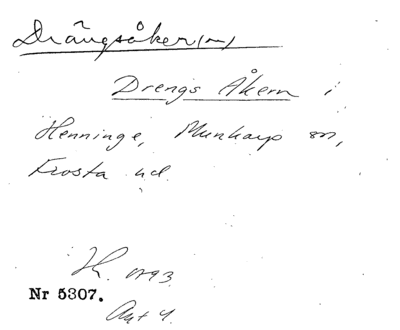 Drängsåker(n)
Drengs Åkern i
Henninge, Munkarp sn,
Frosta hd.
H. 1793
Nr 5307.
Akt 4.